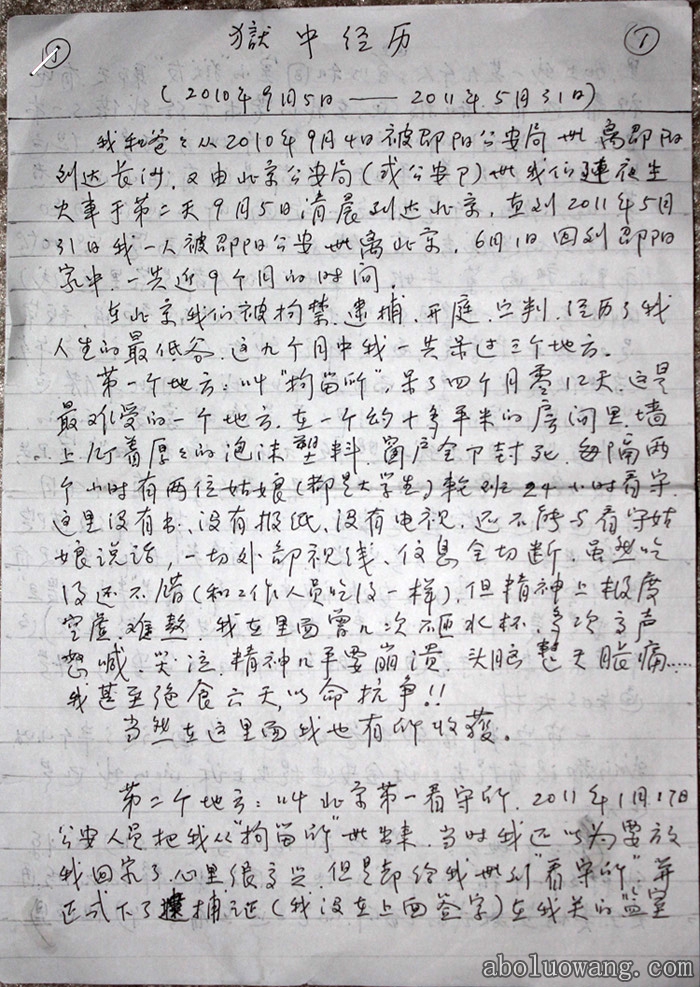 ① ①
獄中经历
(2010年9月5日——2011年5月31日)
我和爸々从2010年9月4日被邵阳公安局带离邵阳
到达长沙.又由北京公安局(或公安部)带我们連夜坐
火車于第二天9月5日清晨到达北京,直到2011年5月
31日我一人被邵阳公安带离北京,6月1日回到邵阳
家中.一共近9个月的时间.
在北京我们被拘禁.逮捕.开庭.宣判.经历了我
人生的最低谷.这九个月中我一共呆过三个地方.
第一个地方:叫"拘留所",呆了四个月零12天.这是
最难受的一个地方.在一个约十多平米的房间里.墙
上钉着厚々的泡沫塑料.窗户全部封死.每隔两
个小时有两位姑娘(都是大学生)轮班24小时看守.
这里没有书、没有报纸、没有电视、还不能与看守姑
娘说话,一切外部视线、信息全切断.虽然吃
得还不错(和工作人员吃得一样),但精神上极度
空虚.难熬.我在里面曾几次砸水杯,多次高声
怒喊.哭泣.精神几乎要崩溃.头脑整天胀痛.....
我甚至绝食六天,以命抗争!!
当然在这里面我也有所收獲。
第二个地方:叫北京第一看守所.2011年1月17日
公安人员把我从"拘留所"带出来.当时我还以为要放
我回家了.心里很高兴.但是却给我带到"看守所".并
正式下了逮捕证(我没在上面签字)在我关的监室
aboluowang.com